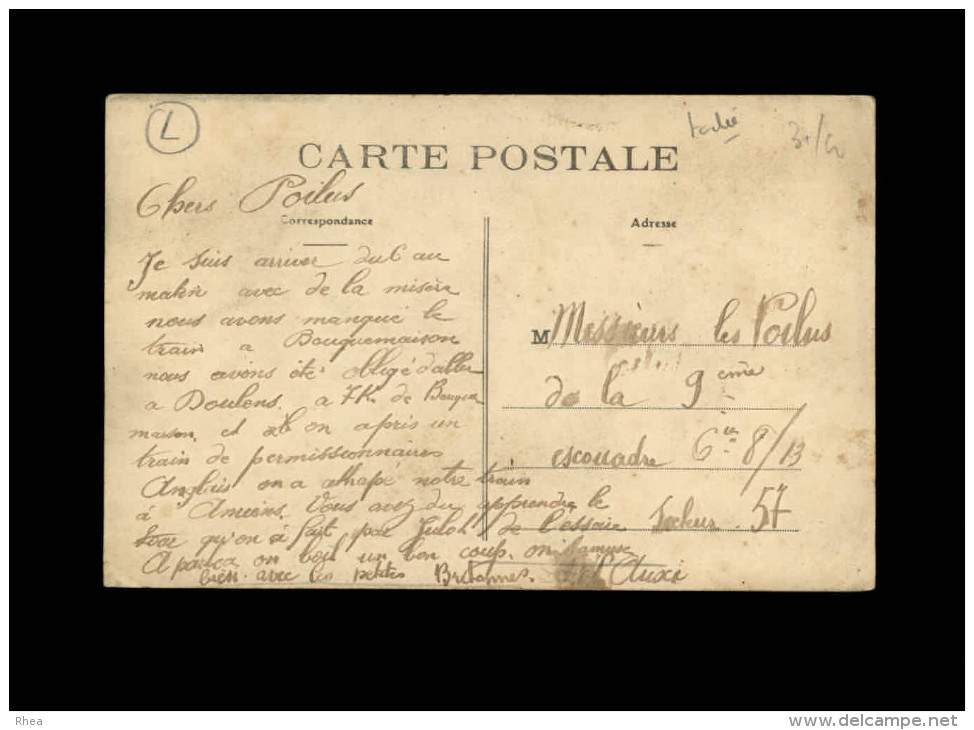 L
taché
CARTE POSTALE
Chers Poilus
Correspondance
Adresse
Je suis arriver du 6 au
matin avec de la misère
nous avons manqué le
train a Bouquemaison
nous avons été obligé d'aller
a Doulens. a 7K. de Bouque
maison. et là on a pris un
train de permissionnaires
Anglais on a attrapé notre train
à Amiens. Vous avez du apprendre le
qu'on a fait par de l'essaie
A part ça on boit un bon coup. on s'amuse
bien avec les petites Bretonnes.
M Messieurs les Poilus
de la 9ème
escouadre 6ie 8/13
Secteur 57
Rhea
delcampe.net